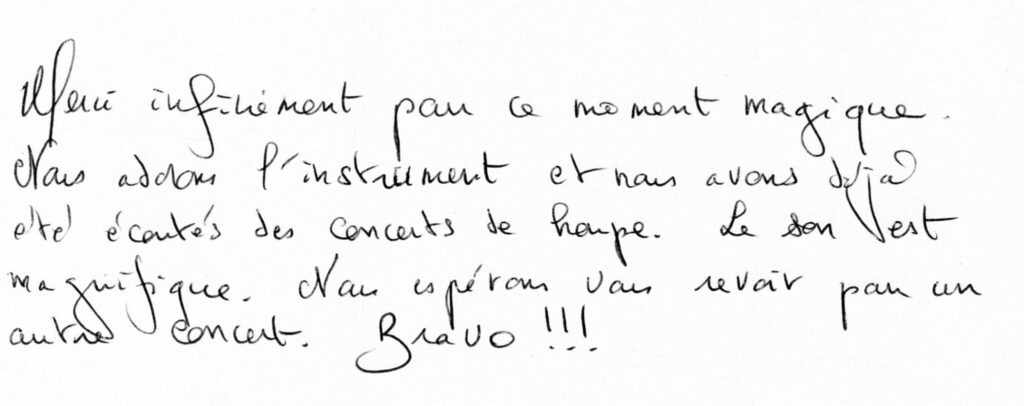 Merci infiniment pour ce moment magique.
Nous adorons l'instrument et nous avons déjà
été écoutés des concerts de harpe. Le son est
magnifique. Nous espérons vous revoir pour un
autre concert. Bravo !!!